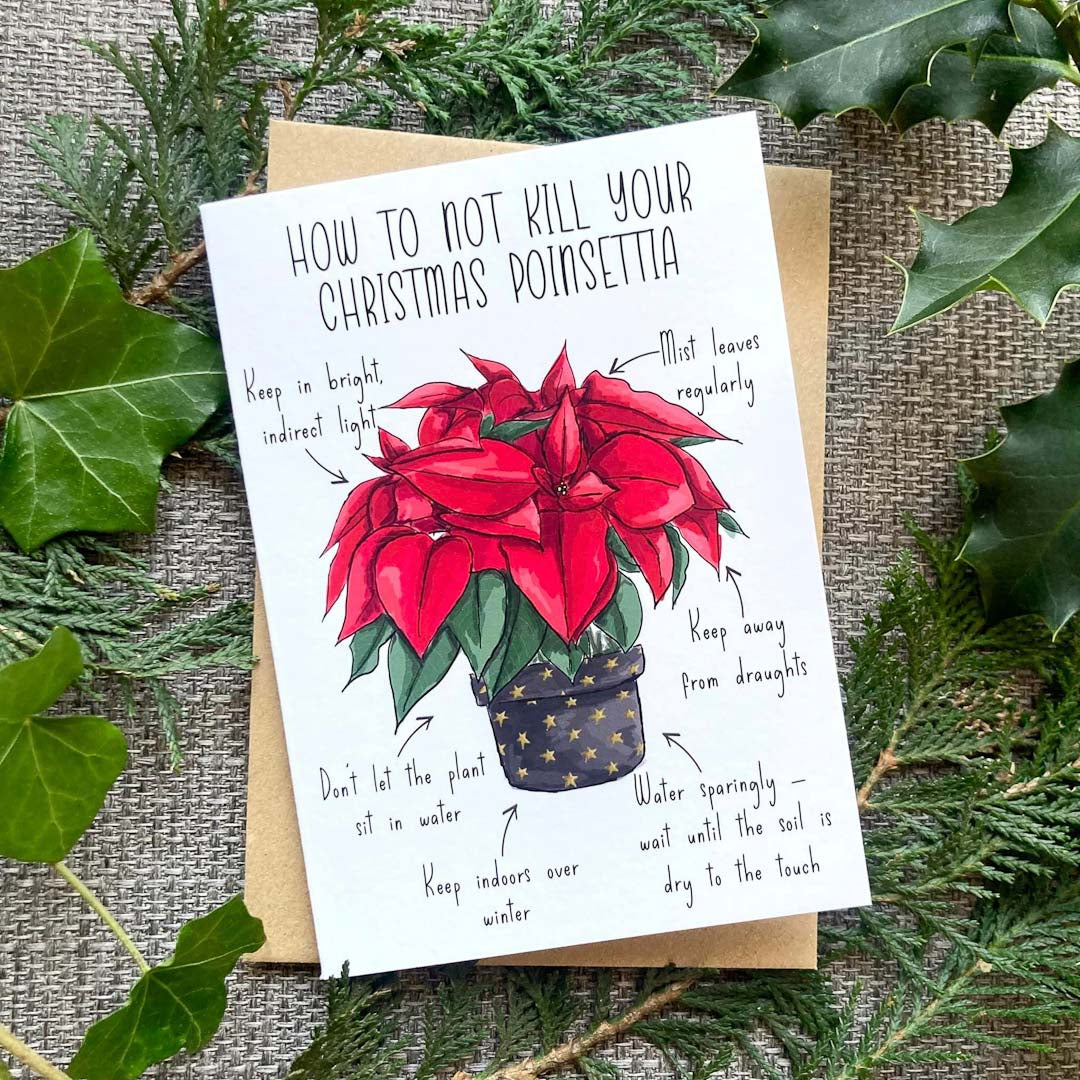 HOW TO NOT KILL YOUR
CHRISTMAS POINSETTIA
Keep in bright,
indirect light
Mist leaves
regularly
Keep away
from draughts
Don't let the plant
sit in water
Water sparingly –
wait until the soil is
dry to the touch
Keep indoors over
winter